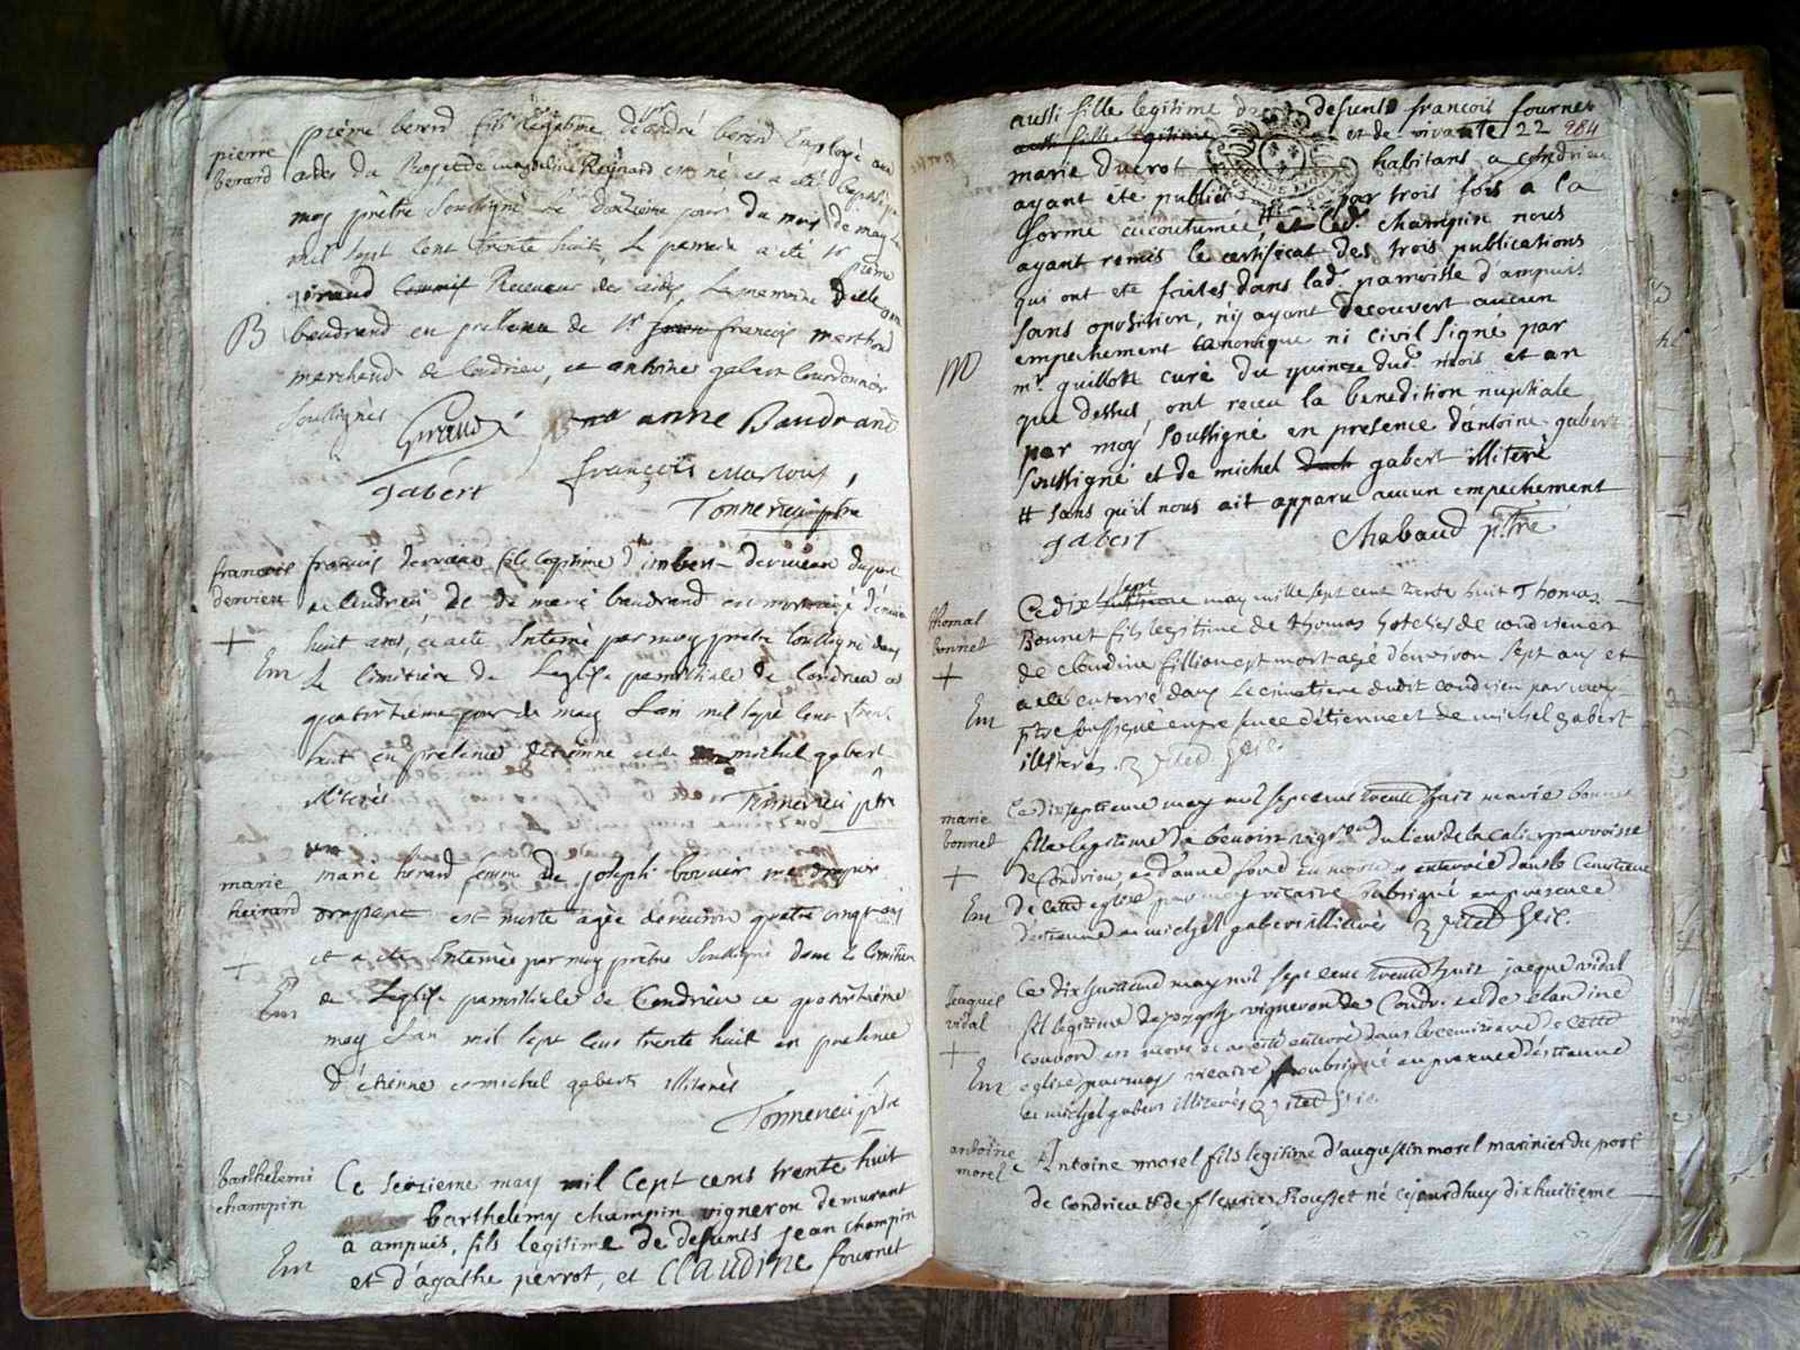 pierre
berard
pierre berard fils légitime de Sr andré berard Employé aux
aides du Roy et de magdeleine Reynard est né et a eté baptisé par
moy prêtre soussigné ce douzieme jour du moy de may
mil sept cent trente huit, le parrain a été Sr pierre
giraud commis Receveur des aides, La marraine Delle anne
B
baudrand en présence de Sr françois merthoud
marchand de Condrieu, et antoine gabert Courdonnier
Soussignés
Giraud
anne Baudrand
gabert
françois
Tonnerieu ptre
françois
dervieu
françois dervieu fils légitime d'imbert dervieu du port
de Condrieu et de marie baudrand est mort agé d'environ
huit ans, et a eté Enterré par moy prêtre soussigné dans
Em
Le Cimitiére de L'eglise parroissiale de Condrieu ce
quatorzième jour de may L'an mil sept cent trente
huit en présence d'étienne et de michel gabert
illiterés
Tonnerieu ptre
marie
heirard
marie herard femme de joseph bouvier
est morte agée d'environ quatre vingt ans
et a eté Enterrée par moy prêtre Soussigné dans le Cimitiere
Em
de L'eglise parroissiale de Condrieu ce quatorzième
may L'an mil sept cens trente huit en présence
d'étienne et michel gabert illiterés
Tonnerieu ptre
barthelemi
champin
Ce seizieme may mil Cept cens trente huit
barthelemy champin vigneron demurant
à ampuis, fils légitime de defunts jean champin
Em
et d'agathe perrot, et Claudine fournet
aussi fille legitime de defunts francois fournet
aussi fille legitime et de vivante 22 984
marie ducrot habitans a condrieu
ayant été publiés par trois fois a la
forme accoutumée, # et led. champin nous
ayant remis le certificat des trois publications
qui ont été faites dans lad. parroisse d'ampuis
sans oposition, n'y ayant decouvert aucun
empechement canonique ni civil signé par
M
mr. guillott curé du quinze dud. mois et an
que dessus, ont receu la benediction nuptiale
par moy soussigné en presence d'antoine gabert
soussigné et de michel gabert illiteré
# sans qu'il nous ait apparu aucun empechement
gabert
Chabaud p.tre
thomas
bonnet
Ce dix sept may mille sept cent trente huit Thomas
Bonnet fils legitime de thomas de condrieu et
de claudine fillion est mort agé d'environ sept ans et
a été enterré dans le cimetiere dudit condrieu par moy
Em
ptre soussigné en presence d'étienne et de michel gabert
illiterés
marie
bonnet
Ce dix septieme may mil sept cens trente huit marie bonnet
fille legitime de benoist vigron du lieu de la parroisse
de Condrieu et d'anne est morte et enterrée dans le Cimetiere
Em
de cette eglise par moy vicaire soubsigné en presence
d'estienne et michel gabert illiterés
jacques
vidal
Ce dix huitieme may mil sept cens trente huit jacque vidal
fils legitime de joseph vigneron de Condr. et de claudine
couvon est mort et a été enterré dans le cemitiere de cette
Em
eglise par moy vicaire soubsigné en presence d'estienne
et michel gabert illiterés
antoine
morel
Antoine morel fils legitime d'augustin morel marinier du port
de condrieu et de fleurie Rousset né cejourdhuy dixhuitieme